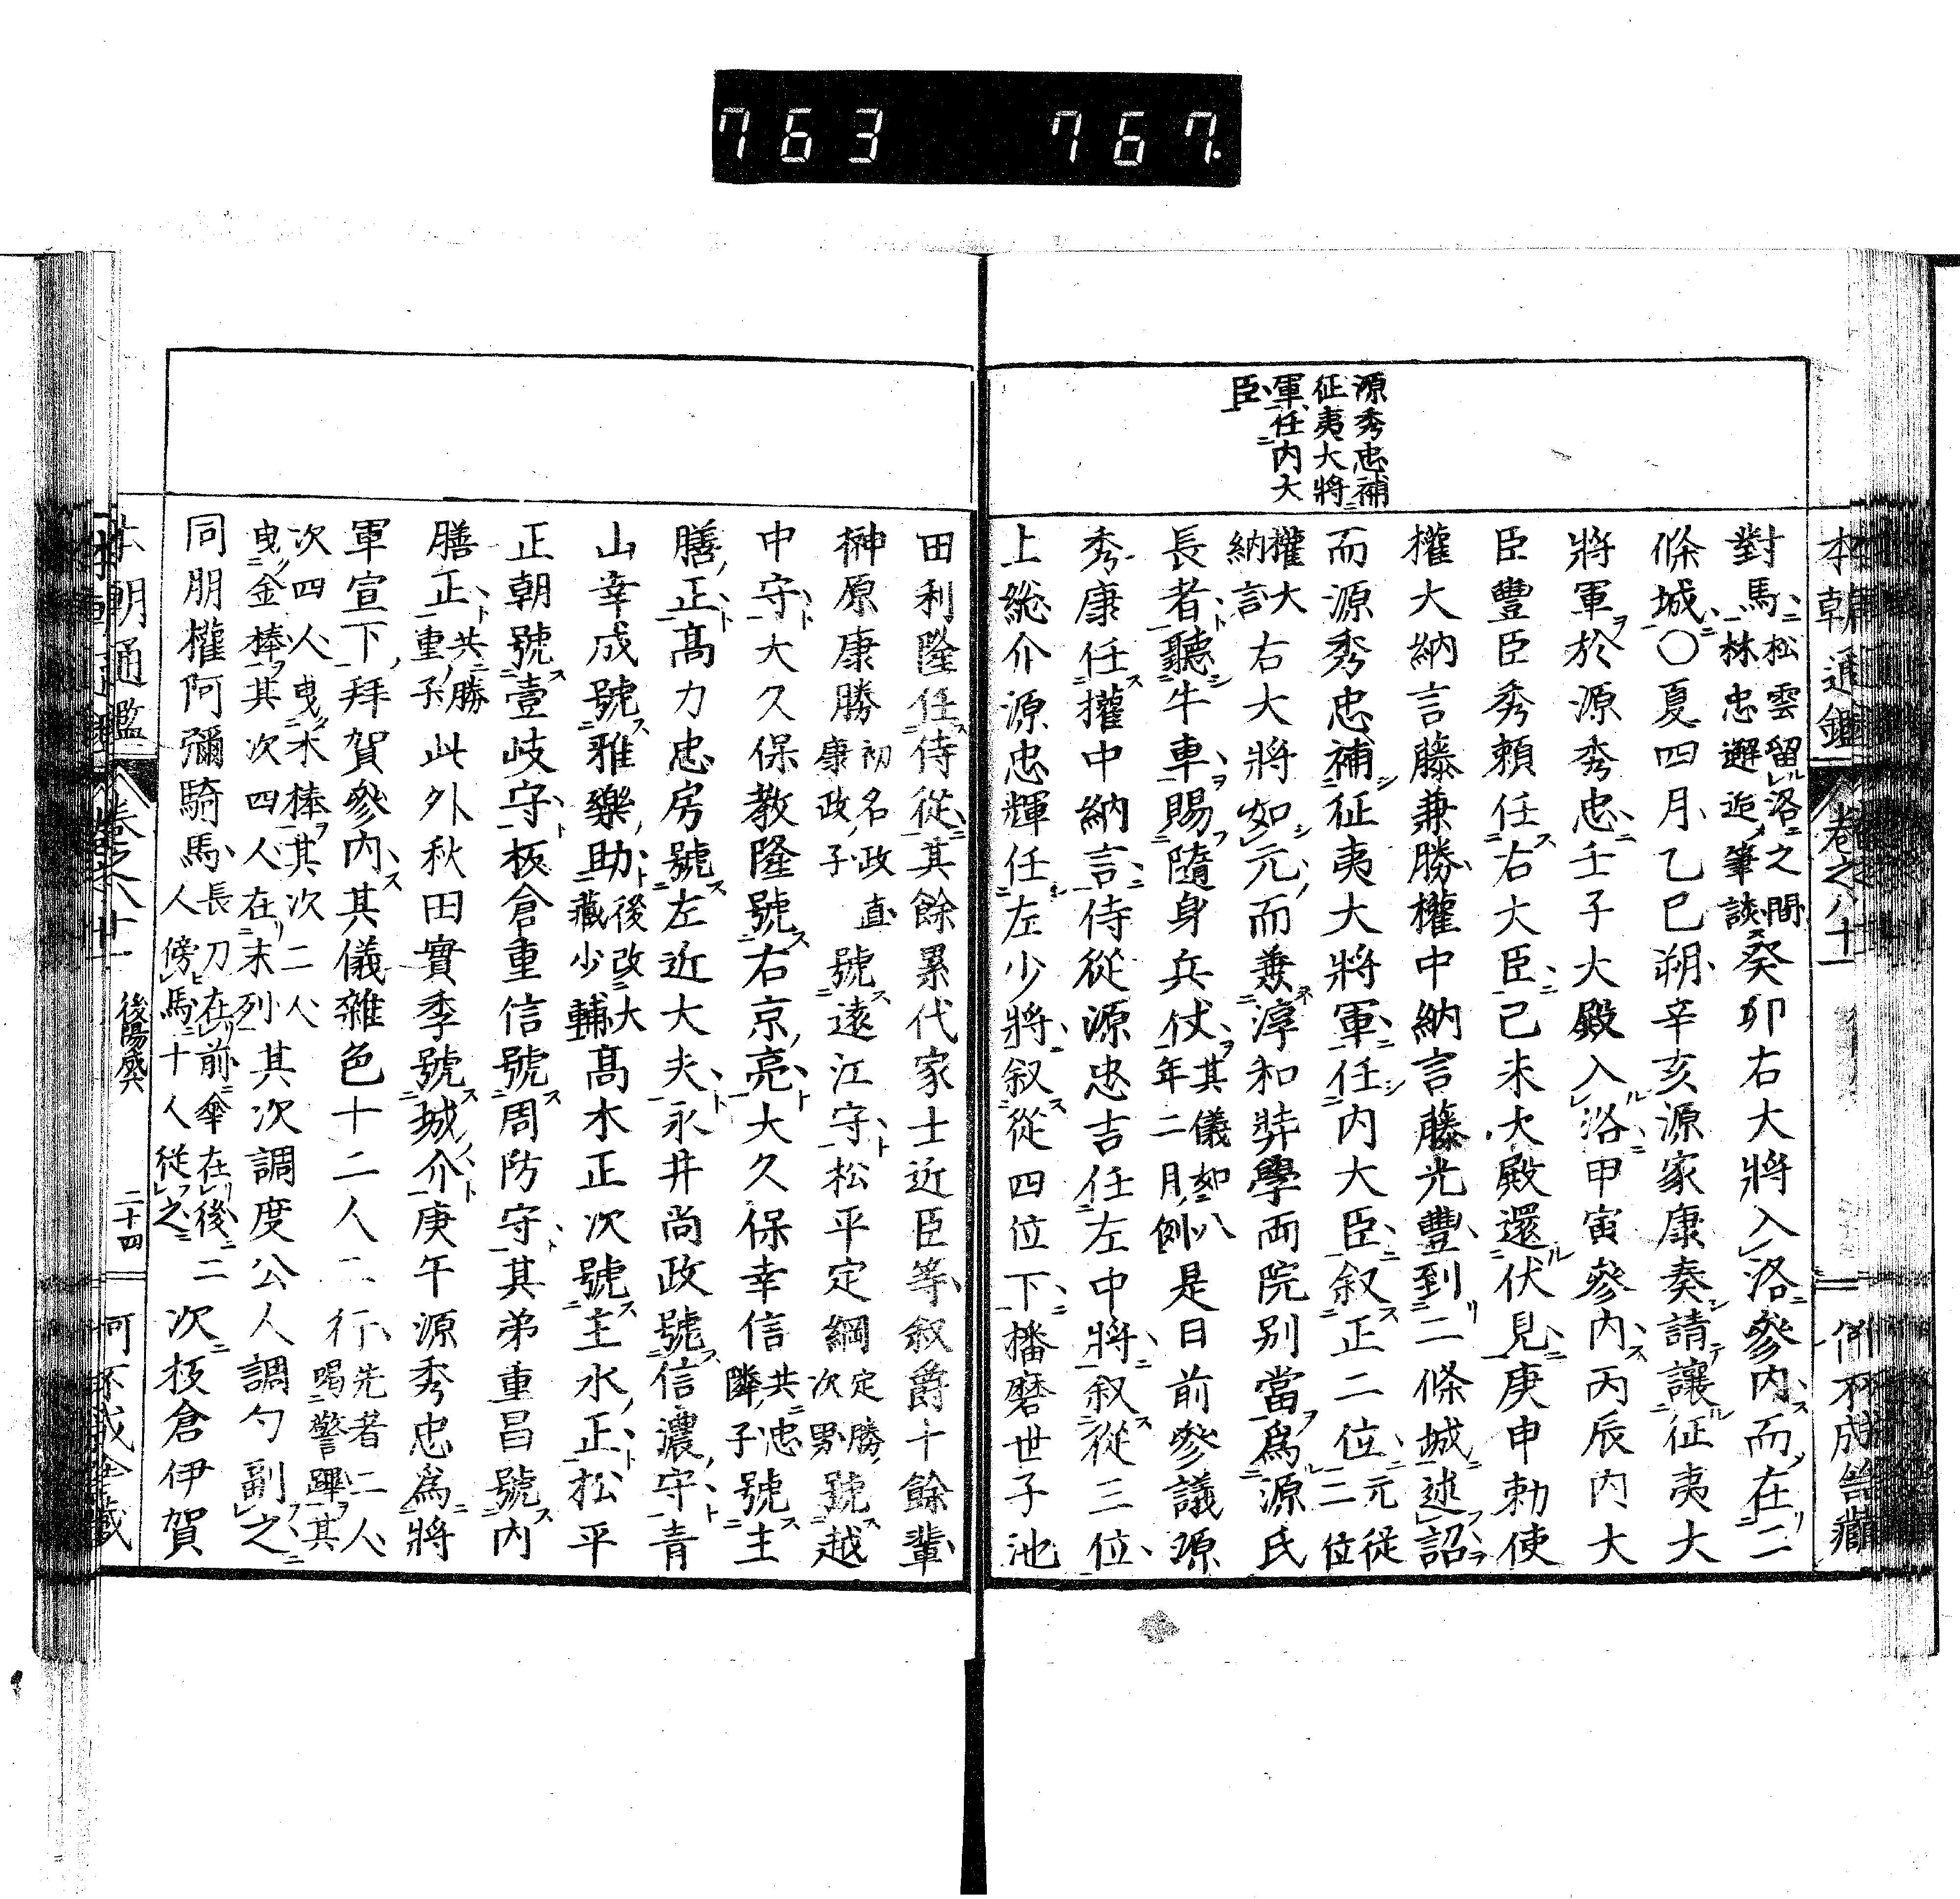 763 767.
本朝通鑑 卷之八十一
源秀忠補
征夷大將
軍任内大
臣
對馬松雲留洛之間林忠邂逅筆談癸卯右大將入洛參内而在二
條城〇夏四月乙巳朔辛亥源家康奏請讓征夷大
將軍於源秀忠壬子大殿入洛甲寅參内丙辰内大
臣豐臣秀頼任右大臣己未大殿還伏見庚申勅使
權大納言藤兼勝權中納言藤光豐到二條城述詔
而源秀忠補征夷大將軍任内大臣叙正二位元從二位
權大納言右大將如元而兼淳和奬學兩院別當爲源氏
長者聽牛車賜隨身兵仗其儀如八年二月例是日前參議源
秀康任權中納言侍從源忠吉任左中將叙從三位
上総介源忠輝任左少將叙從四位下播磨世子池
田利隆任侍從其餘累代家士近臣等叙爵十餘輩
榊原康勝初名政直康政子號遠江守松平定綱定勝次男號越
中守大久保教隆號右京亮大久保幸信共忠隣子號主
膳正髙力忠房號左近大夫永井尚政號信濃守青
山幸成號雅樂助後改大藏少輔髙木正次號主水正松平
正朝號壹岐守板倉重信號周防守其弟重昌號内
膳正共勝重子此外秋田實季號城介庚午源秀忠爲將
軍宣下拜賀參内其儀雜色十二人二行先者二人喝警蹕其
次四人曳木棒其次二人曳金棒其次四人在末列其次調度公人調勺副之
同朋權阿彌騎馬長刀在前傘在後二人傍馬十人從之次板倉伊賀
本朝通鑑 卷之八十一 後陽成 二十四